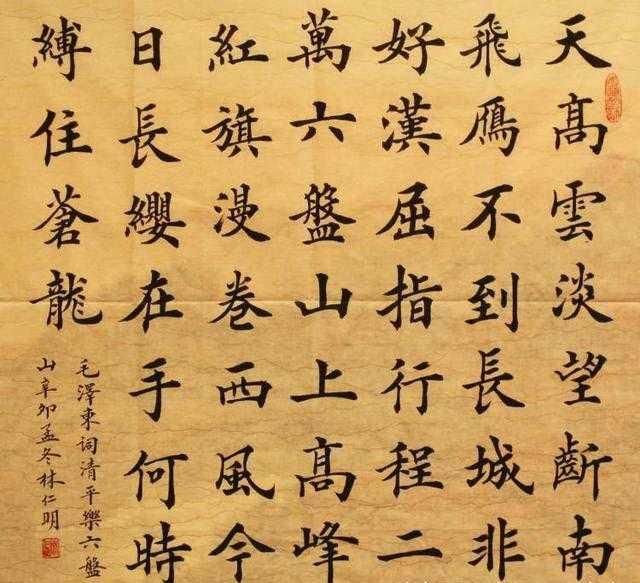 天髙雲淡望斷南
飛鴈不到長城非
好漢屈指行程二
萬六盤山上髙峰
紅旗漫卷西風今
日長纓在手何時
縛住蒼龍
毛澤東詞清平樂六盤
山辛卯孟冬林仁明